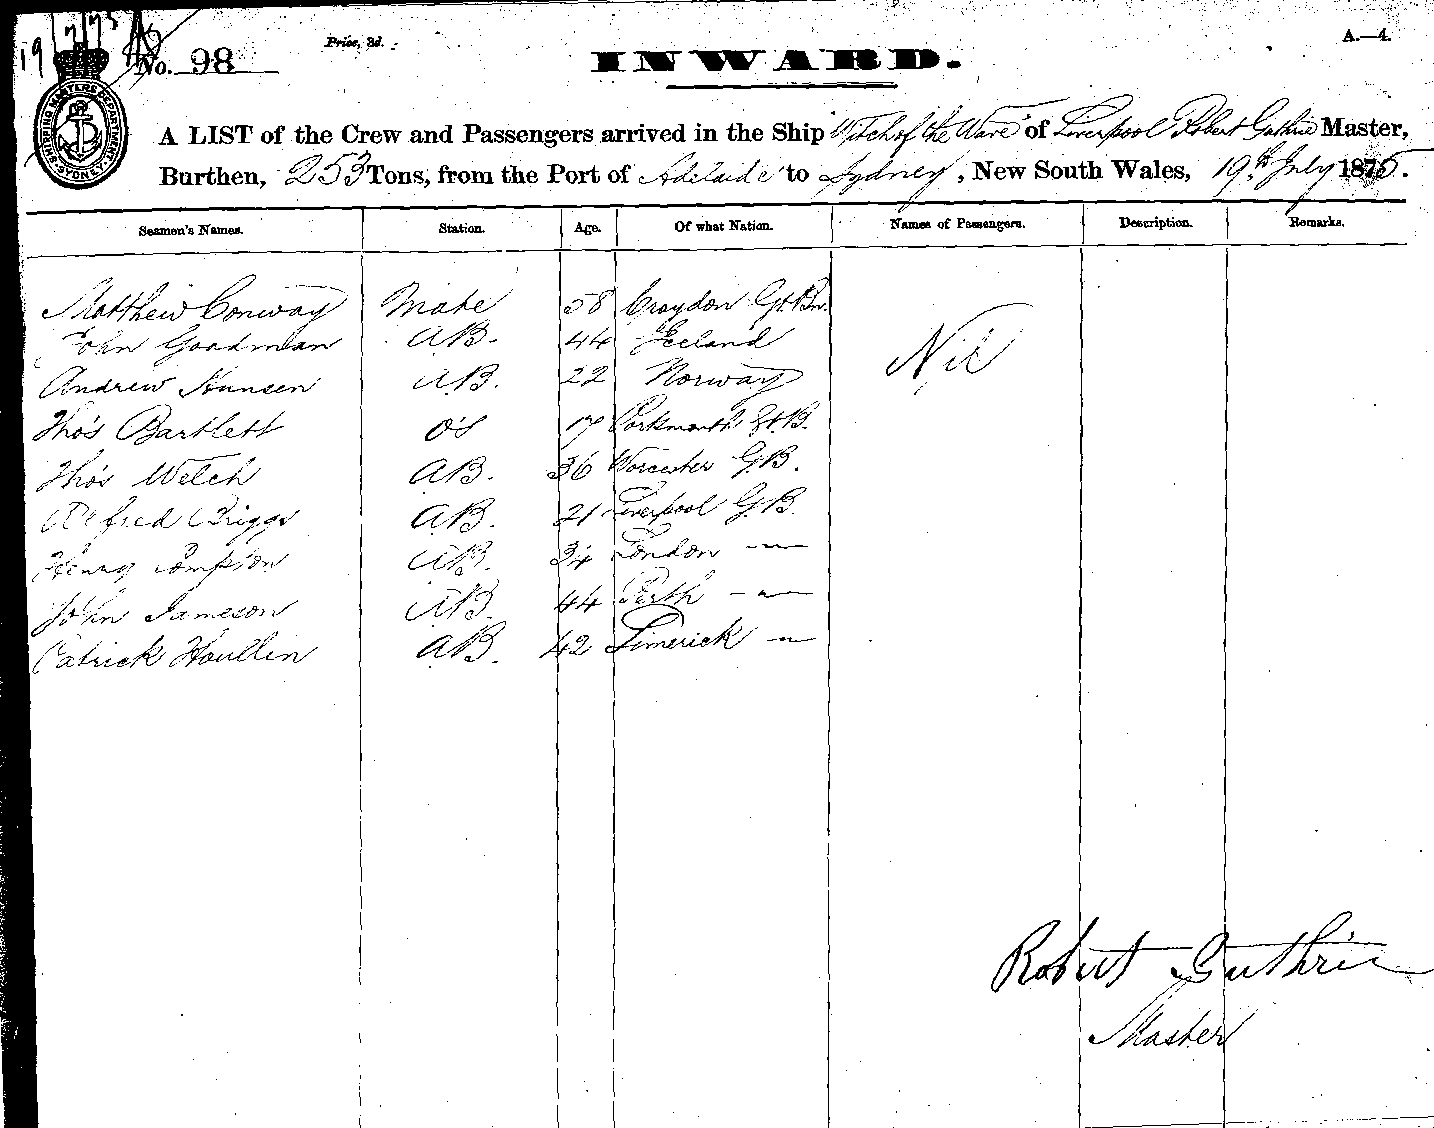 19/7/75
No. 98
Price, 3d.
A.—4.
INWARD.
SHIPPING MASTERS DEPARTMENT SYDNEY
A LIST of the Crew and Passengers arrived in the Ship "Witch of the Wave" of Liverpool Robert Guthrie Master,
Burthen, 253 Tons, from the Port of Adelaide to Sydney, New South Wales, 19th July 1875.
Seamen's Names. Station. Age. Of what Nation. Names of Passengers. Description. Remarks.
Matthew Conway Mate 58 Croydon Gt. Bn.
John Goodman AB. 44 Iceland Nil
Andrew Hansen AB. 22 Norway
Tho's Bartlett OS 17 Portsmouth Gt. B.
Tho's Welch AB. 36 Worcester G B.
Alfred Briggs AB. 21 Liverpool G B.
Henry Compton AB. 34 London —"—
John Jameson AB. 44 Perth —"—
Patrick Houllin AB. 42 Limerick —"—
Robert Guthrie
Master